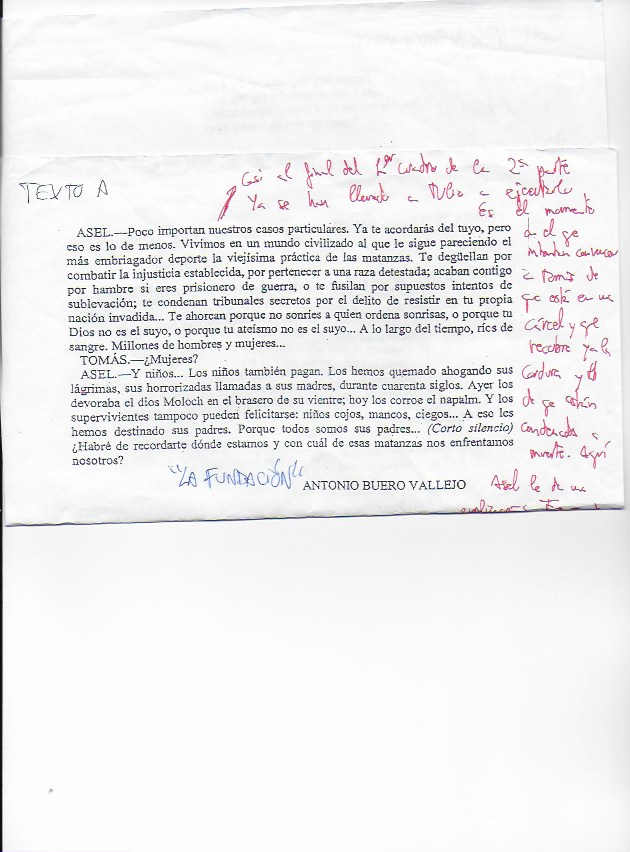 TEXTO A
Casi al final del 1er cuadro de la 2ª parte
Ya se han llevado a Tulio a ejecutarlo
Es el momento
en el qe
intentan convencer
a Tomás de
qe está en una
cárcel y qe
recobre ya la
cordura y
de qe están
condenados a
muerte. Aquí
Asel le da una
ASEL.—Poco importan nuestros casos particulares. Ya te acordarás del tuyo, pero
eso es lo de menos. Vivimos en un mundo civilizado al que le sigue pareciendo el
más embriagador deporte la viejísima práctica de las matanzas. Te degüellan por
combatir la injusticia establecida, por pertenecer a una raza detestada; acaban contigo
por hambre si eres prisionero de guerra, o te fusilan por supuestos intentos de
sublevación; te condenan tribunales secretos por el delito de resistir en tu propia
nación invadida... Te ahorcan porque no sonríes a quien ordena sonrisas, o porque tu
Dios no es el suyo, o porque tu ateísmo no es el suyo... A lo largo del tiempo, ríos de
sangre. Millones de hombres y mujeres...
TOMÁS.—¿Mujeres?
ASEL.—Y niños... Los niños también pagan. Los hemos quemado ahogando sus
lágrimas, sus horrorizadas llamadas a sus madres, durante cuarenta siglos. Ayer los
devoraba el dios Moloch en el brasero de su vientre; hoy los corroe el napalm. Y los
supervivientes tampoco pueden felicitarse: niños cojos, mancos, ciegos... A eso les
hemos destinado sus padres. Porque todos somos sus padres... (Corto silencio)
¿Habré de recordarte dónde estamos y con cuál de esas matanzas nos enfrentamos
nosotros?
"LA FUNDACIÓN"
ANTONIO BUERO VALLEJO